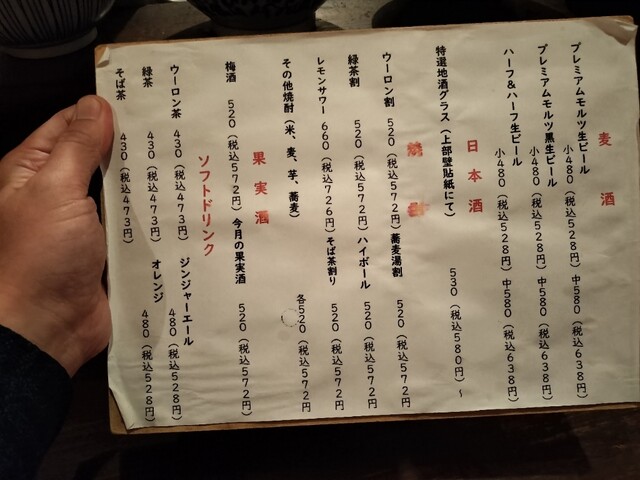 麦酒
プレミアムモルツ生ビール 小480(税込528円) 中580(税込638円)
プレミアムモルツ黒生ビール 小480(税込528円) 中580(税込638円)
ハーフ&ハーフ生ビール 小480(税込528円) 中580(税込638円)
日本酒
特選地酒グラス(上部壁貼紙にて) 530(税込580円)~
焼酎
ウーロン割 520(税込572円) 蕎麦湯割 520(税込572円)
緑茶割 520(税込572円) ハイボール 520(税込572円)
レモンサワー 660(税込726円) そば茶割り 520(税込572円)
その他焼酎(米、麦、芋、蕎麦) 各520(税込572円)
果実酒
梅酒 520(税込572円) 今月の果実酒 520(税込572円)
ソフトドリンク
ウーロン茶 430(税込473円) ジンジャーエール 480(税込528円)
緑茶 430(税込473円) オレンジ 480(税込528円)
そば茶 430(税込473円)